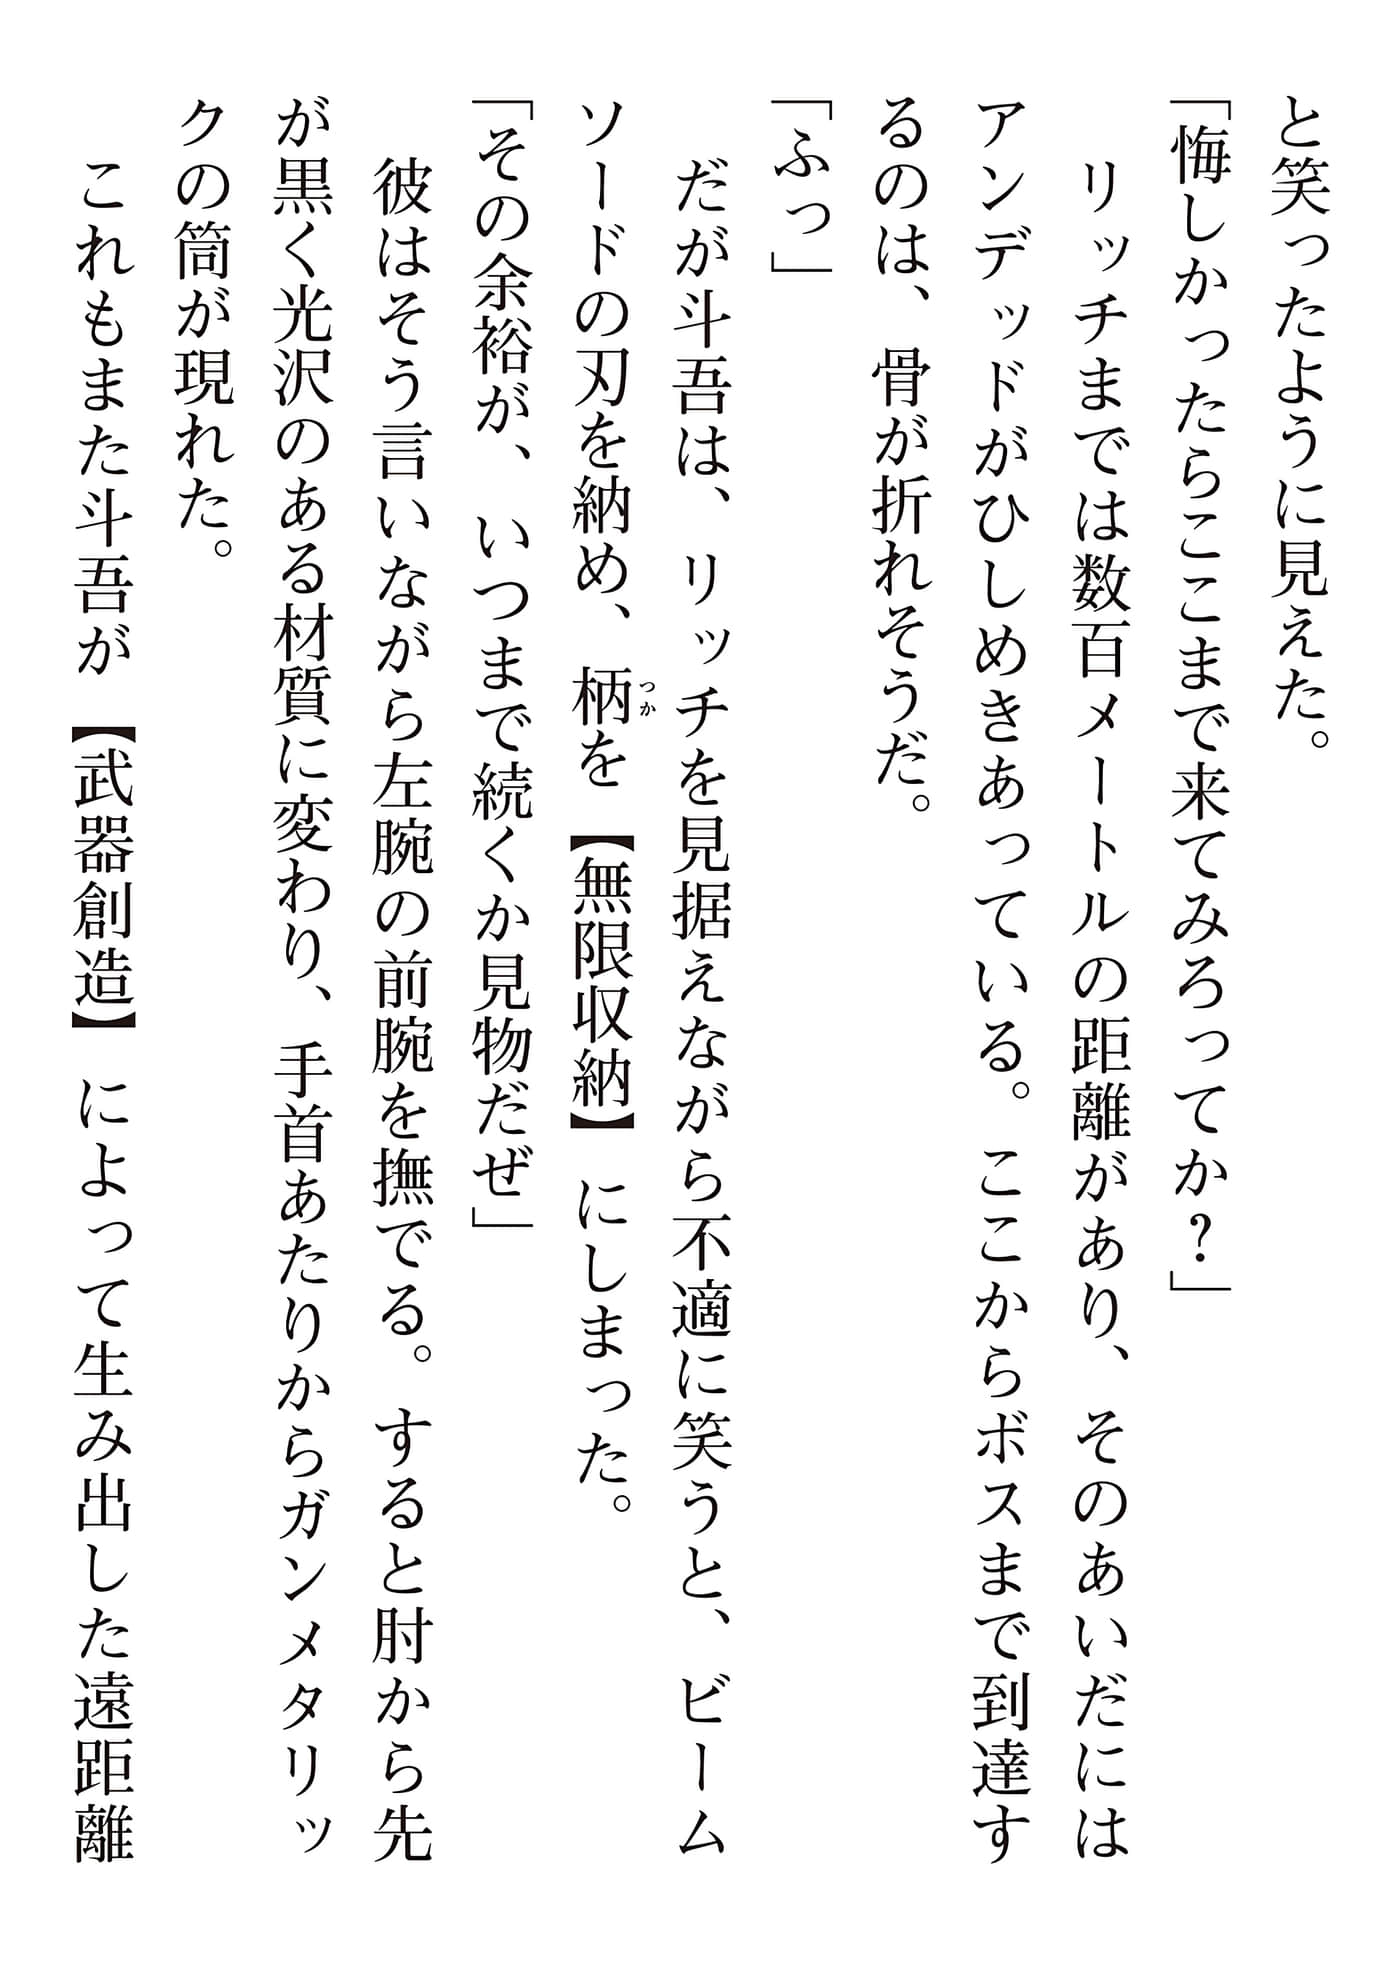 と笑ったように見えた。
「悔しかったらここまで来てみろってか?」
　リッチまでは数百メートルの距離があり、そのあいだには
アンデッドがひしめきあっている。ここからボスまで到達す
るのは、骨が折れそうだ。
「ふっ」
　だが斗吾は、リッチを見据えながら不適に笑うと、ビーム
ソードの刃を納め、柄を【無限収納】にしまった。
つか
「その余裕が、いつまで続くか見物だぜ」
　彼はそう言いながら左腕の前腕を撫でる。すると肘から先
が黒く光沢のある材質に変わり、手首あたりからガンメタリッ
クの筒が現れた。
　これもまた斗吾が【武器創造】によって生み出した遠距離